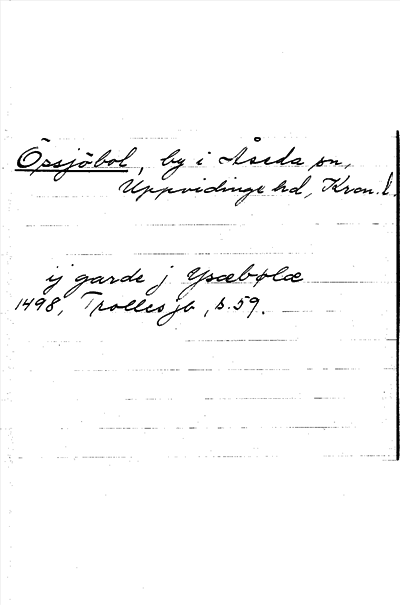 Öpsjöbol, by i Åseda sn,
Uppvidinge hd, Kron. l.
ij garde j Ypsæbolæ
1498, Trolles jb, s. 59.